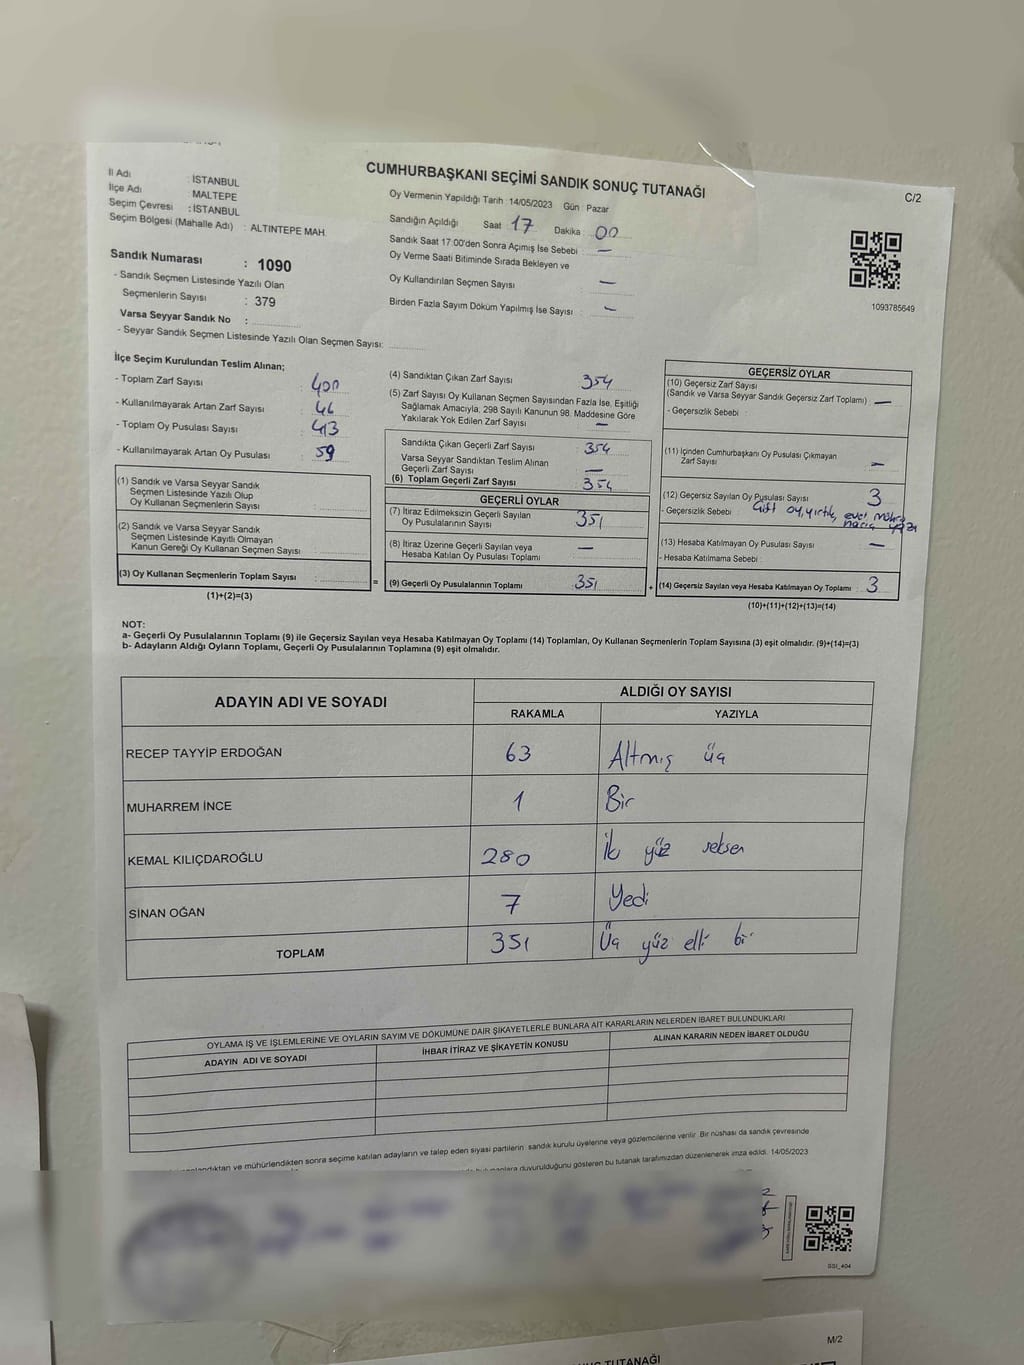 CUMHURBAŞKANI SEÇİMİ SANDIK SONUÇ TUTANAĞI
C/2
İl Adı : İSTANBUL
İlçe Adı : MALTEPE
Seçim Çevresi : İSTANBUL
Seçim Bölgesi (Mahalle Adı) : ALTINTEPE MAH.
Sandık Numarası : 1090
- Sandık Seçmen Listesinde Yazılı Olan
Seçmenlerin Sayısı : 379
Varsa Seyyar Sandık No :
- Seyyar Sandık Seçmen Listesinde Yazılı Olan Seçmen Sayısı:
Oy Vermenin Yapıldığı Tarih : 14/05/2023 Gün : Pazar
Sandığın Açıldığı Saat : 17 Dakika : 00
Sandık Saat 17.00'den Sonra Açımış İse Sebebi : —
Oy Verme Saati Bitiminde Sırada Bekleyen ve
Oy Kullandırılan Seçmen Sayısı : —
Birden Fazla Sayım Döküm Yapılmış İse Sayısı : —
1093785649
İlçe Seçim Kurulundan Teslim Alınan;
- Toplam Zarf Sayısı : 400
- Kullanılmayarak Artan Zarf Sayısı : 46
- Toplam Oy Pusulası Sayısı : 413
- Kullanılmayarak Artan Oy Pusulası : 59
(1) Sandık ve Varsa Seyyar Sandık
Seçmen Listesinde Yazılı Olup
Oy Kullanan Seçmenlerin Sayısı :
(2) Sandık ve Varsa Seyyar Sandık
Seçmen Listesinde Kayıtlı Olmayan
Kanun Gereği Oy Kullanan Seçmen Sayısı :
(3) Oy Kullanan Seçmenlerin Toplam Sayısı : =
(1)+(2)=(3)
(4) Sandıktan Çıkan Zarf Sayısı : 354
(5) Zarf Sayısı Oy Kullanan Seçmen Sayısından Fazla İse, Eşitliği
Sağlamak Amacıyla, 298 Sayılı Kanunun 98. Maddesine Göre
Yakılarak Yok Edilen Zarf Sayısı : —
Sandıkta Çıkan Geçerli Zarf Sayısı : 354
Varsa Seyyar Sandıktan Teslim Alınan
Geçerli Zarf Sayısı : —
(6) Toplam Geçerli Zarf Sayısı : 354
GEÇERLİ OYLAR
(7) İtiraz Edilmeksizin Geçerli Sayılan
Oy Pusulalarının Sayısı : 351
(8) İtiraz Üzerine Geçerli Sayılan veya
Hesaba Katılan Oy Pusulası Toplamı : —
(9) Geçerli Oy Pusulalarının Toplamı : 351 +
GEÇERSİZ OYLAR
(10) Geçersiz Zarf Sayısı
(Sandık ve Varsa Seyyar Sandık Geçersiz Zarf Toplamı) : —
- Geçersizlik Sebebi :
(11) İçinden Cumhurbaşkanı Oy Pusulası Çıkmayan
Zarf Sayısı : —
(12) Geçersiz Sayılan Oy Pusulası Sayısı : 3
- Geçersizlik Sebebi : Çift oy, yırtık, evet mührü
hariç yazı
(13) Hesaba Katılmayan Oy Pusulası Sayısı : —
- Hesaba Katılmama Sebebi :
(14) Geçersiz Sayılan veya Hesaba Katılmayan Oy Toplamı : 3
(10)+(11)+(12)+(13)=(14)
NOT:
a- Geçerli Oy Pusulalarının Toplamı (9) ile Geçersiz Sayılan veya Hesaba Katılmayan Oy Toplamı (14) Toplamları, Oy Kullanan Seçmenlerin Toplam Sayısına (3) eşit olmalıdır. (9)+(14)=(3)
b- Adayların Aldığı Oyların Toplamı, Geçerli Oy Pusulalarının Toplamına (9) eşit olmalıdır.
ADAYIN ADI VE SOYADI
ALDIĞI OY SAYISI
RAKAMLA YAZIYLA
RECEP TAYYİP ERDOĞAN 63 Altmış üç
MUHARREM İNCE 1 Bir
KEMAL KILIÇDAROĞLU 280 İki yüz seksen
SİNAN OĞAN 7 Yedi
TOPLAM 351 Üç yüz elli bir
OYLAMA İŞ VE İŞLEMLERİNE VE OYLARIN SAYIM VE DÖKÜMÜNE DAİR ŞİKAYETLERLE BUNLARA AİT KARARLARIN NELERDEN İBARET BULUNDUKLARI
ADAYIN ADI VE SOYADI İHBAR İTİRAZ VE ŞİKAYETİN KONUSU ALINAN KARARIN NEDEN İBARET OLDUĞU
ve mühürlendikten sonra seçime katılan adayların ve talep eden siyasi partilerin sandık kurulu üyelerine veya gözlemcilerine verilir. Bir nüshası da sandık çevresinde
duyurulduğunu gösteren bu tutanak tarafımızdan düzenlenerek imza edildi. 14/05/2023
SSI_404
M/2
TUTANAĞI